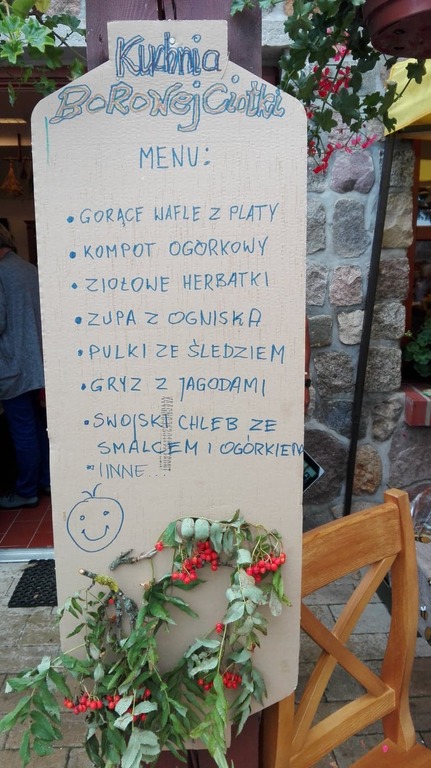 Kuchnia
Borowej Ciotki
MENU:
• GORĄCE WAFLE Z PLATY
• KOMPOT OGÓRKOWY
• ZIOŁOWE HERBATKI
• ZUPA Z OGNISKA
• PULKI ZE ŚLEDZIEM
• GRYZ Z JAGODAMI
• SWOJSKI CHLEB ZE
SMALCEM I OGÓRKIEM
• INNE...